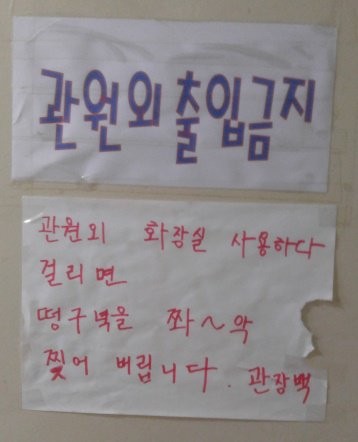 관원외출입금지
관원외 화장실 사용하다
걸리면
떵구벅을 쫘~악
찢어 버립니다. 관장백